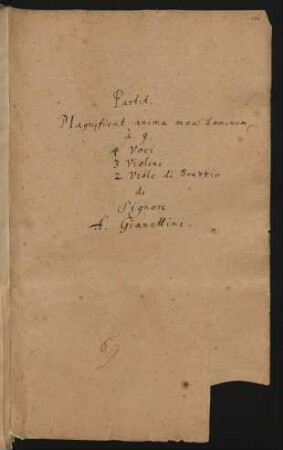 Partit.
Magnificat anima mea Dominum,
à 9
4 Voci
3 Violini
2 Viole di Brazzio
di
Signore
A. Gianettini.